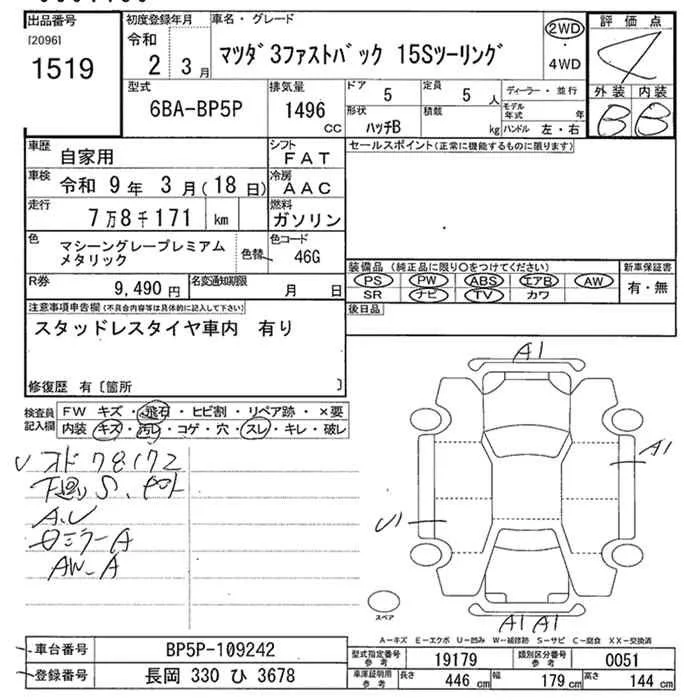 出品番号
[2096]
1519
初度登録年月
令和
2 3月
車名・グレード
マツダ3ファストバック 15Sツーリング
2WD
・
4WD
評価点
4
外装 内装
B B
型式
6BA-BP5P
排気量
1496
CC
ドア
5
定員
5 人
形状
ハッチB
積載
kg
ディーラー・並行
モデル
年式 年
ハンドル 左・右
車歴
自家用
シフト
FAT
車検
令和 9年 3月(18日)
冷房
AAC
走行
7万8千171 km
燃料
ガソリン
色
マシーングレープレミアム
メタリック
色替
色コード
46G
R券
9,490円
名変通知期限
月 日
セールスポイント(正常に機能するものに限ります)
装備品 (純正品に限り○をつけてください)
PS PW ABS エアB AW
SR ナビ TV カワ
新車保証書
有・無
後日品
注意事項申告欄(不具合内容等は具体的に記入して下さい)
スタッドレスタイヤ車内 有り
修復歴 有〔箇所 〕
検査員
記入欄
FW キズ・飛石・ヒビ割・リペア跡・×要
内装 キズ・汚レ・コゲ・穴・スレ・キレ・破レ
オド78172
下廻りS、
A.U
ミラーA
AW-A
A1
A1
U1
A1 A1
スペア
A-キズ E-エクボ U-凹み W-補修跡 S-サビ C-腐食 XX-交換済
車台番号
BP5P-109242
登録番号
長岡 330 ひ 3678
型式指定番号
参考
19179
類別区分番号
参考
0051
車庫証明用
参考
長さ
446 cm
幅
179 cm
高さ
144 cm